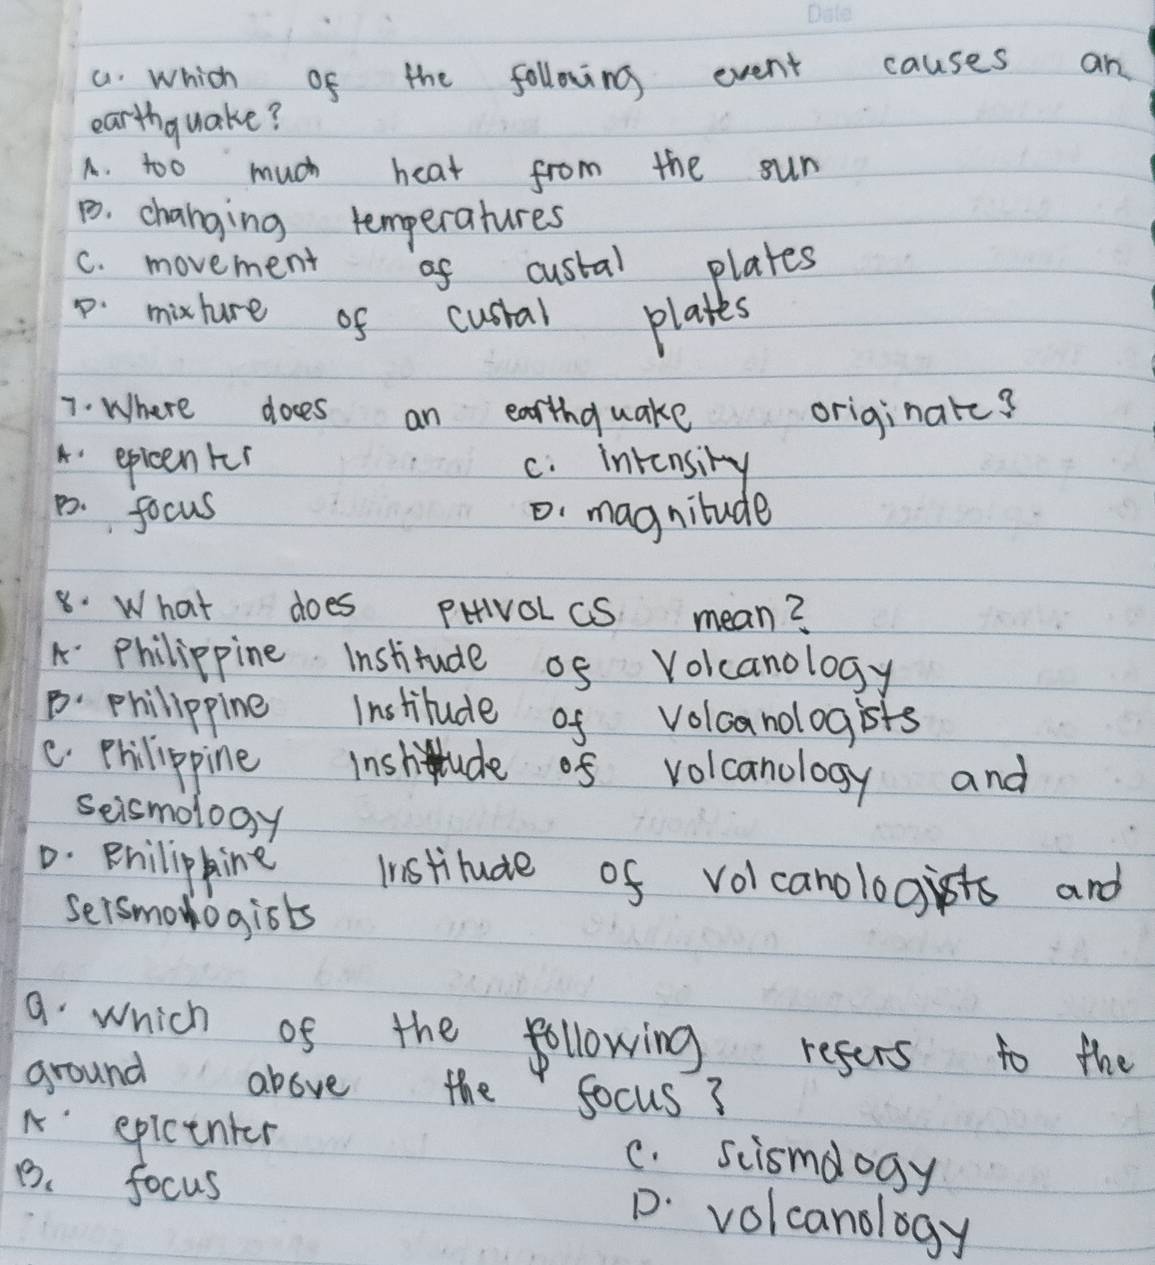 Date
6. Which of the following event causes an
earthquake?
A. too much heat from the sun
B. changing temperatures
C. movement of custal plates
D. mixture of custal plates
7. Where does an earthquake originate?
A. epicenter C. intensity
B. focus D. magnitude
8. What does PHIVOLCS mean?
A. Philippine Institude of Volcanology
B. Philippine Institude of volcanologists
C. Philippine institude of volcanology and
seismology
D. Philippine Institude of volcanologists and
seismologists
9. Which of the following refers to the
ground above the focus?
A. epicenter
C. seismology
B. focus
D. volcanology